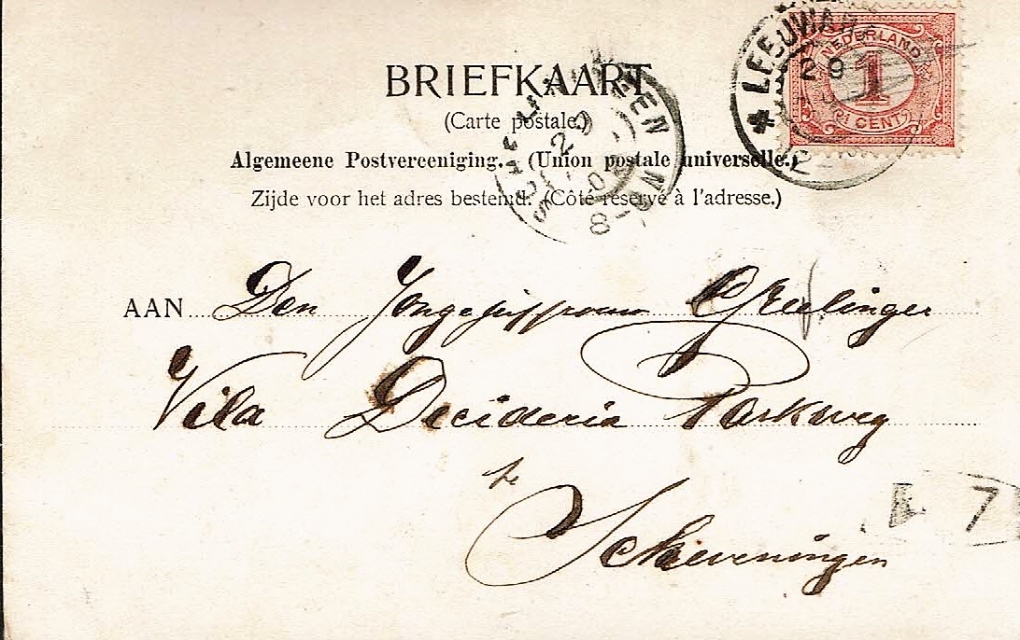 BRIEFKAART
(Carte postale.)
Algemeene Postvereeniging. (Union postale universelle.)
Zijde voor het adres bestemd. (Côté réservé à l'adresse.)
LEEUWAR
29
NEDERLAND
1
1 CENT
29
8-9N
AAN Den Jongejuffrouw Greelinger
Vila Decideria Parkweg
te
Scheveningen
7